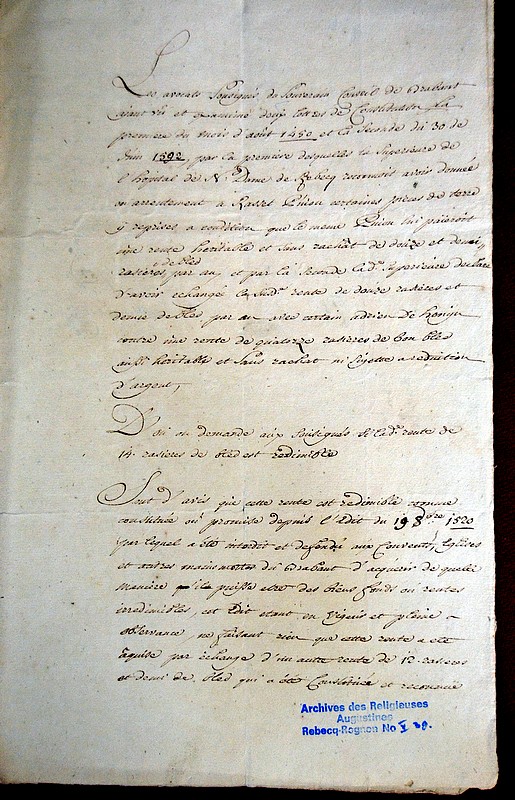 Les avocats Sousignés du Souverain Conseil de Brabant
aiant vû et examiné deux lettres de Constitution La
premiere du mois d'août 1450 et la seconde du 30 de
Juin 1592, par la premiere desquelles la Superieure de
l'hopital de N: Dame de Rebecq reconnoit avoir donnée
en arrentement a Rasset certaines pieces de terre
y reprises a condition que le meme lui paieroit
une rente heritable et sans rachât de douze et demi
rasieres de bled par an, et par la seconde la d.e Superieure declare
d'avoir echangé la sud.e rente de douze rasieres et
demie de bled par an avec certain adrien de
contre une rente de quatorze rasieres de bon bled
aussi heritable et sans rachat ni sujette a reduction
d'argent,
D'où on demande aux Sousignés si lad.e rente de
14. rasieres de bled est redimible
Sont d'avis que cette rente est redimible comme
constituée ou promise depuis l'Edit du 19 8bre 1520
par lequel a été interdit et defendu aux Couvents, Eglises
et autres mainmortes du Brabant d'acquerir de quelle
maniere qu'ils puisse etre des biens fonds ou rentes
irredimibles, cet Edit etant en vigeur et pleine
observance, ne faisant rien que cette rente a été
aquise par echange d'un autre rente de 12 rasieres
et demi de bled qui a été Constituée et reconnue
Archives des Religieuses
Augustines
Rebecq-Rognon No V 39.